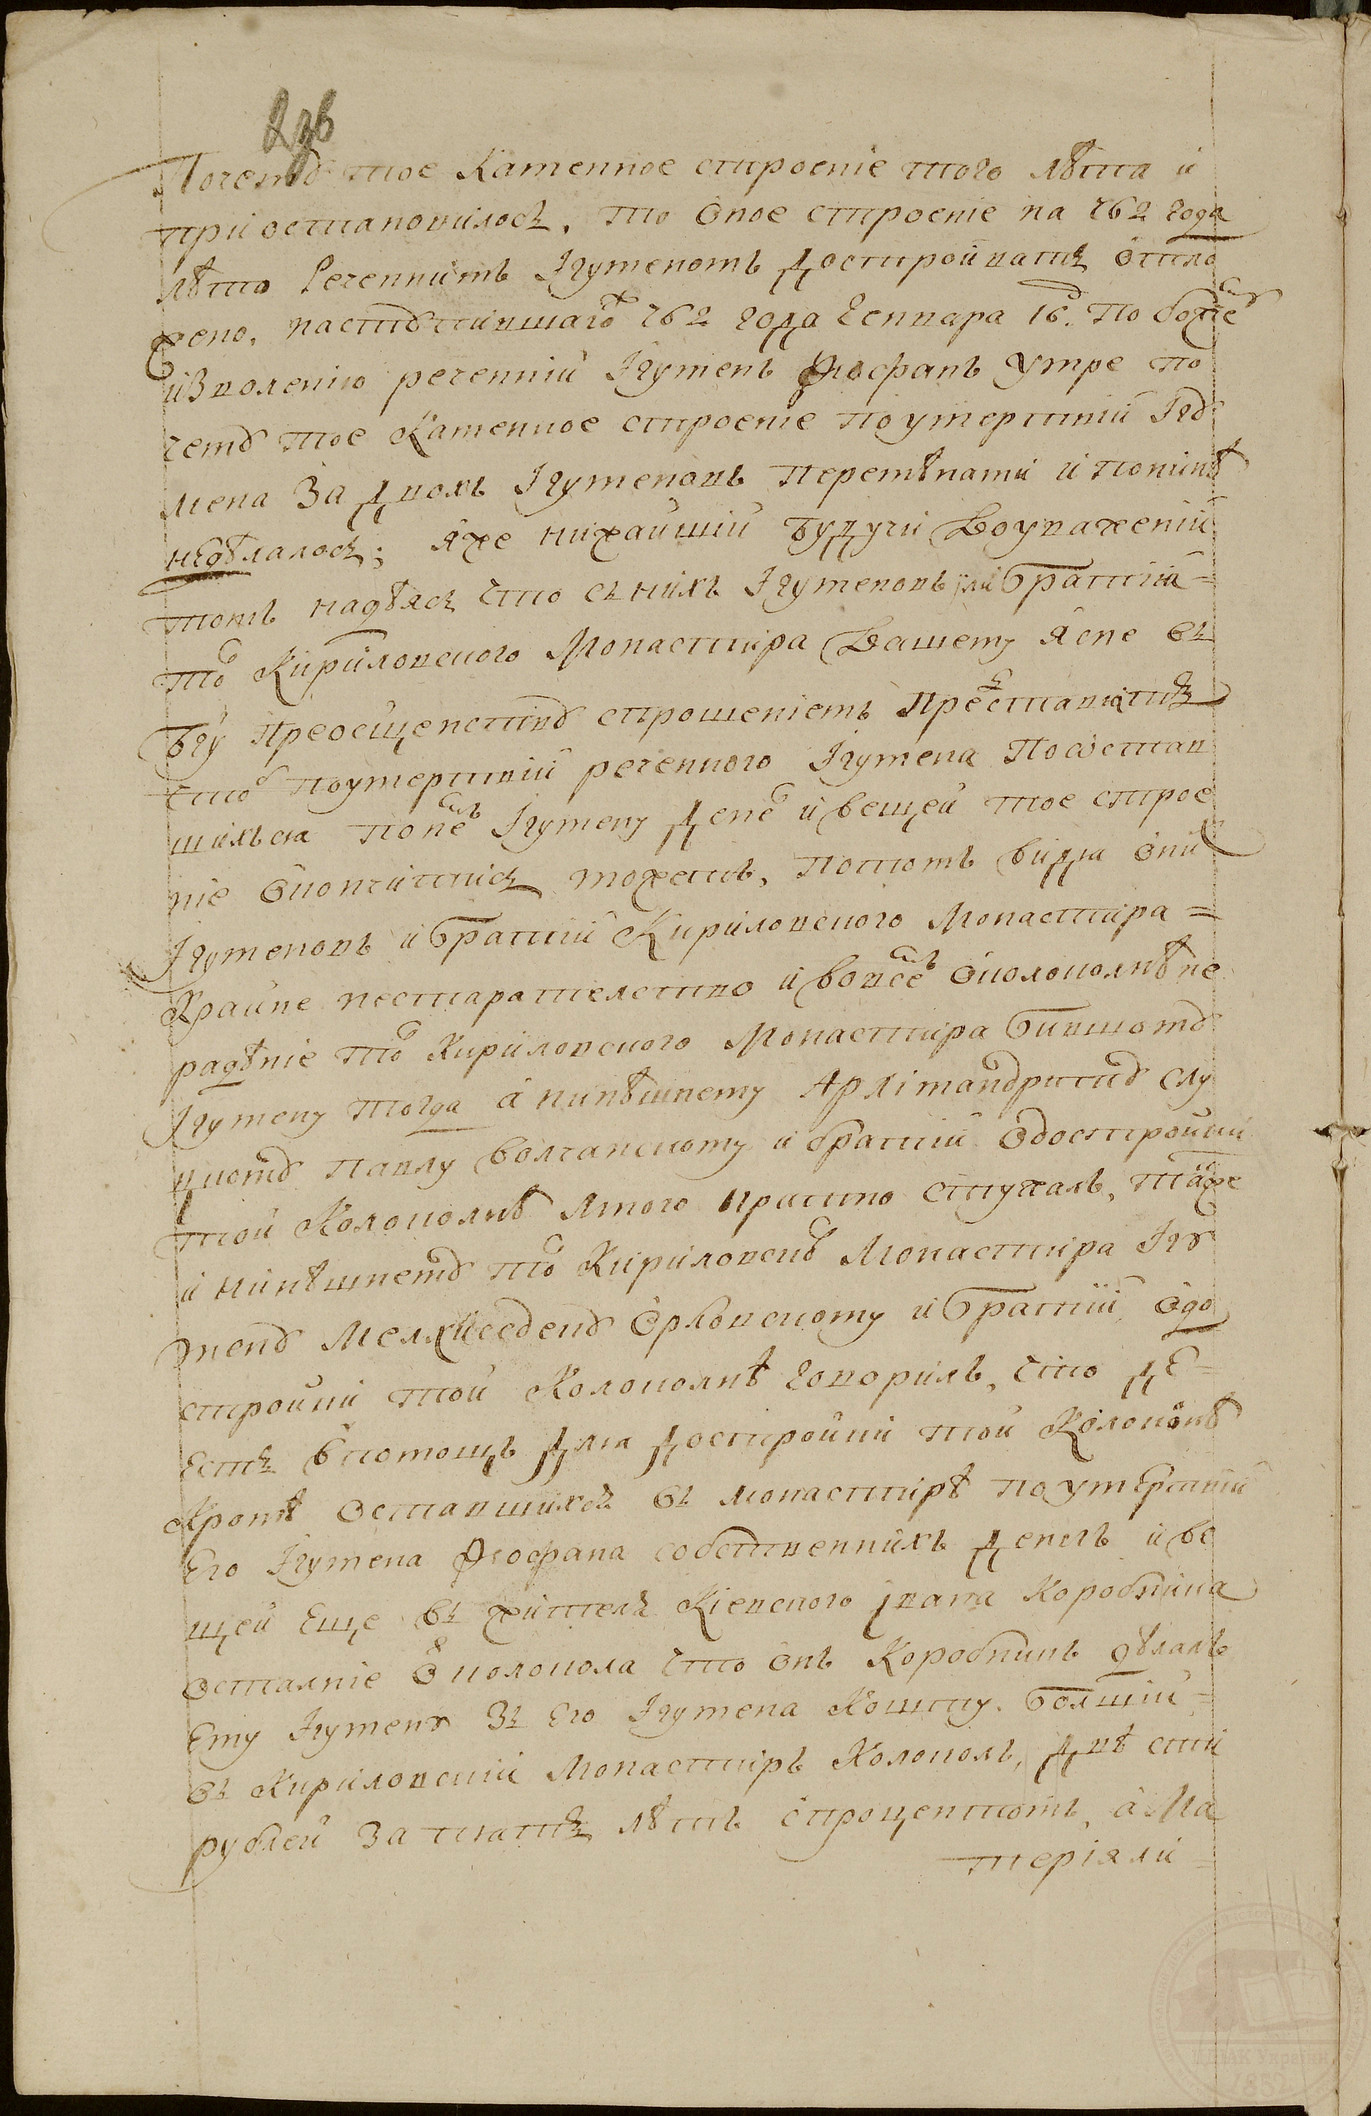 Почему тое Каменное строеніе того лѣта и
пріостановилось, то оное строеніе на 762 года
лѣто Реченнимъ Ігуменомъ достройвать отло
жено, наступившаго 762 года Генвара 16. По божіе
изволенію реченній Ігуменъ Феофанъ умре по
чему тое Каменное строеніе по умертвій Ігу
мена За двохъ Ігуменовъ перемѣнами и понинѣ
недѣлалось; я же нижайшій будучи Воуважений
томъ надѣясь что сънихъ Ігуменовъ или Братій
того Кириловского Монастира Вашему Ясне въ
Бгу Преосщенству спрошеніемъ Представить
что поумертвій реченного Ігумена Посостав
шихъся по немъ Ігумену денег и вещей тое строе
ніе окончитись можетъ, потомъ видя оний
Ігуменовъ и Братій Кириловского Монастира
Крайне нестарателство и вовсемъ околоколнѣ не
радѣніе того Кириловского Монастира Бившому
Ігумену тогда а нинѣшнему Архімандриту Слу
цкому Павлу Волчанскому и братій одостройки
той Колоколнѣ Много Прилично стужалъ, також
и нинѣшнему того Кириловского Монастира Ігу
мену Мелхиседеку Орловскому и Братій, одо
стройки той Колоколнѣ говорилъ, что де
есть впомощъ для достройки той Колоколнѣ
Кромѣ оставшихсь въ монастирѣ по умертвій
Его Ігумена Феофана собственнихъ денегъ и ве
щей Еще въ жителя Кіевского Івана Коробкина
осталніе от колокола что онъ Коробкинъ дѣлалъ
Ему Ігумену Зъ Его Ігумена Кошту. Болшій
въ Кириловскій Монастиръ Колоколъ, двѣ сти
рублей За пять лѣтъ спроцентомъ, а Ма
теріяли